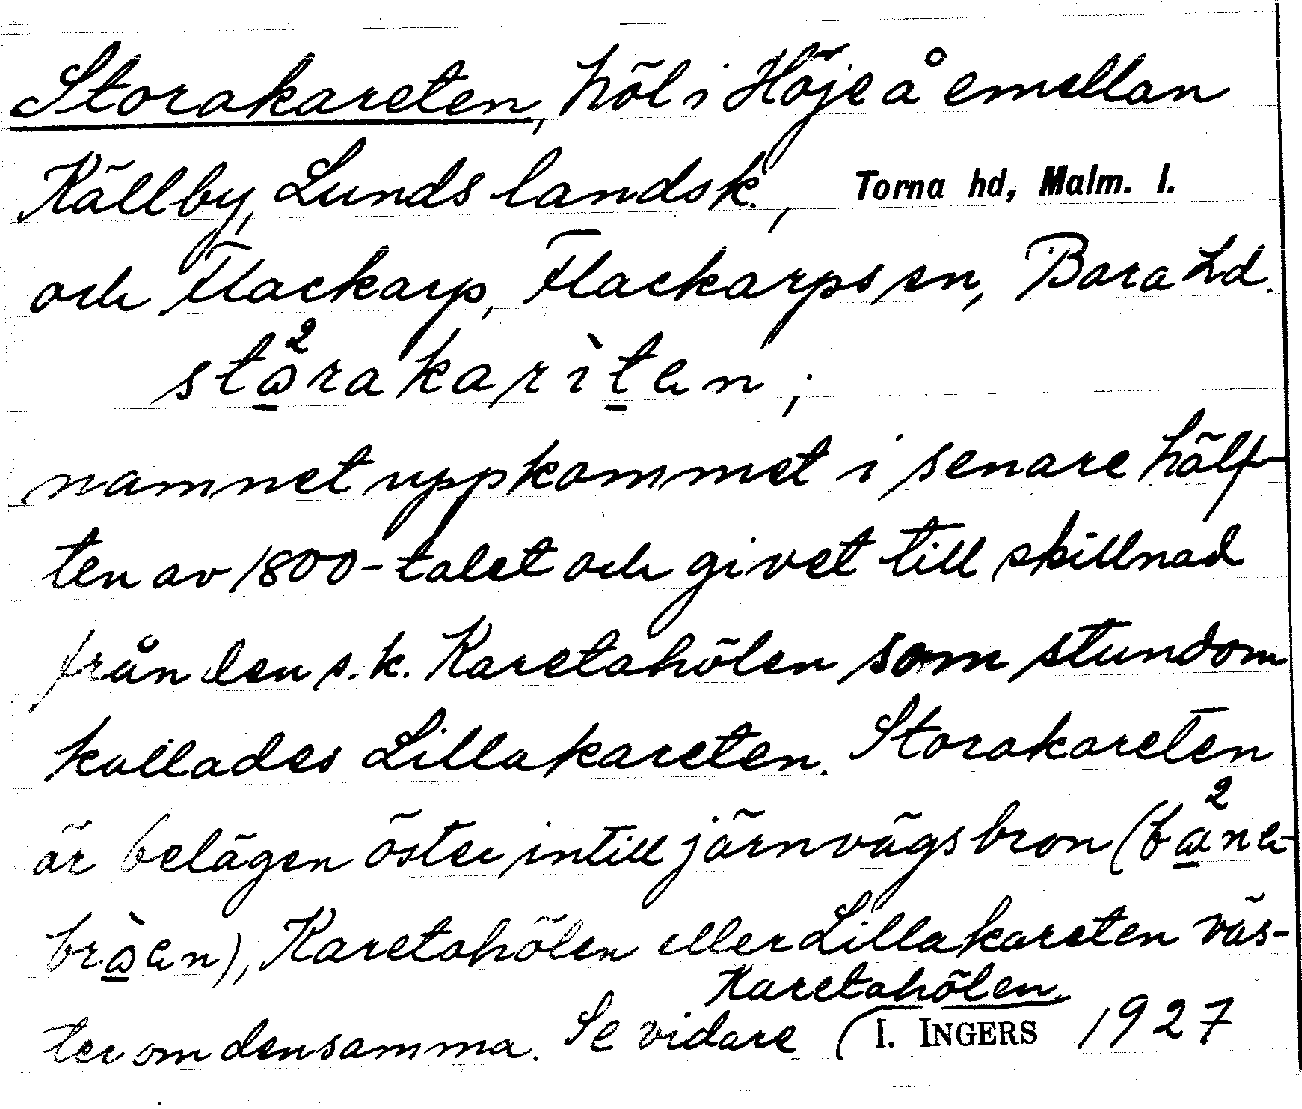 Storakareten, höl i Höje å emellan
Källby, Lunds landsk., Torna hd, Malm. l.
och Flackarp, Flackarps sn, Bara hd.
stå̱²rakarìṯen;
namnet uppkommet i senare hälf-
ten av 1800-talet och givet till skillnad
från den s.k. Karetahölen som stundom
kallades Lillakareten. Storakareten
är belägen öster intill järnvägsbron (bå̱²ne-
brå̱̀en), Karetahölen eller Lillakareten väs-
ter om densamma. Se vidare Karetahölen.
I. INGERS 1927